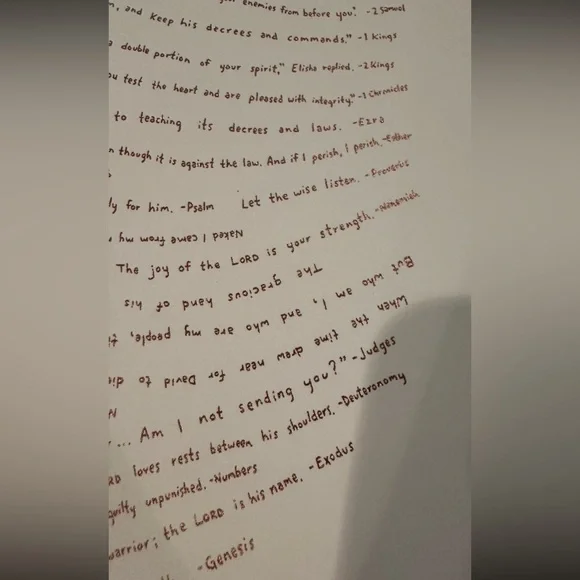 enemies from before you." -2 Samuel
, and keep his decrees and commands." -1 Kings
a double portion of your spirit," Elisha replied. -2 Kings
ou test the heart and are pleased with integrity." -1 Chronicles
to teaching its decrees and laws. -Ezra
n though it is against the law. And if I perish, I perish. -Esther
ly for him. -Psalm Let the wise listen. -Proverbs
Naked I came from my
The joy of the LORD is your strength. -Nehemiah
The gracious hand of his
But who am I, and who are my people,
When the time drew near for David to die
... Am I not sending you?" -Judges
RD loves rests between his shoulders. -Deuteronomy
guilty unpunished. -Numbers
warrior; the LORD is his name. -Exodus
-Genesis